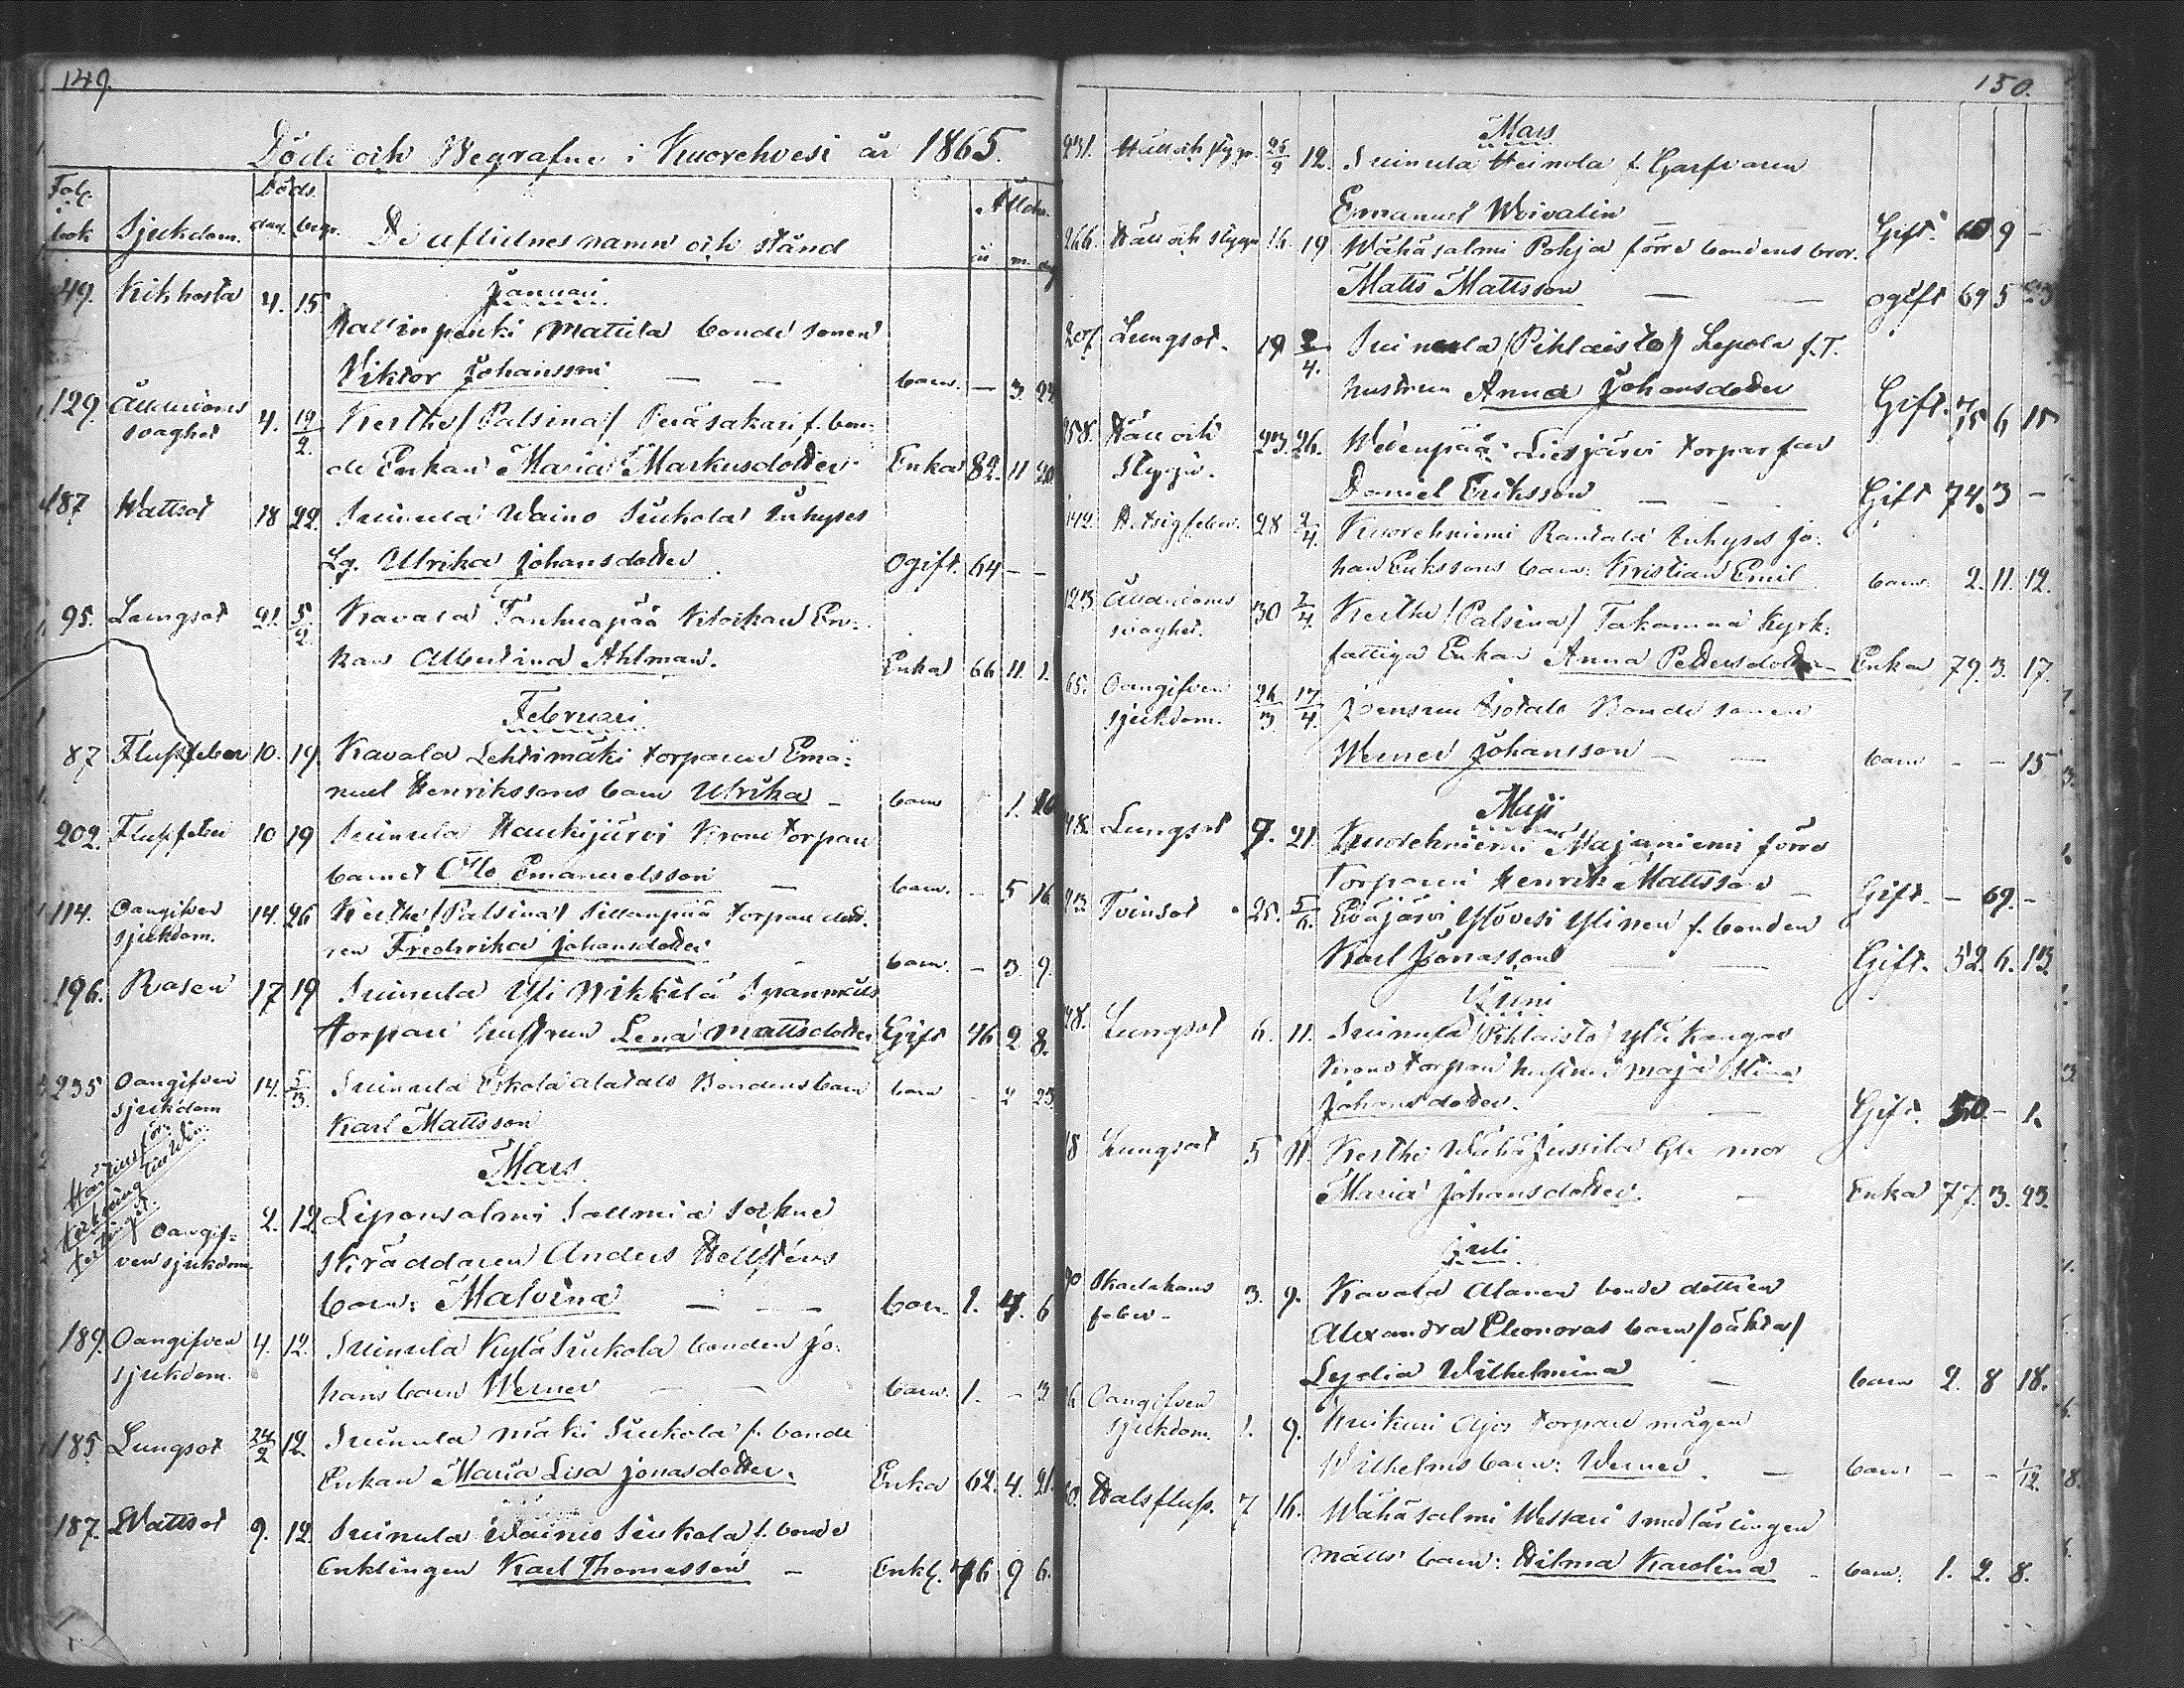 149.
Döde och Begrafne i Kuorehvesi år 1865.
Döds Ålder
bok Sjukdom. dag. begr. De aflidnes namn och stånd år m. dag
Januari
49. Kikhosta 4. 15
Mattila bonde sonen
Viktor Johansson — — barn. — 3. 24
129. Ålderdoms svaghet 4. 12/2. Kertte /Palsina/ Peräsakari f. bon-
de Enkan Maria Markusdotter Enka 82. 11 20
187 Wattsot 18 22. Suinula Waino Siukola Inhyses
Lg. Ulrika Johansdotter Ogift. 64 — —
95. Lungsot 21. 5/2. Kavala Tanhuapää Klockare En-
kan Albertina Ahlman. Enka 66 11. 1.
Februari
87 Flussfeber 10. 19 Kavala Lehtimäki torparen Ema-
nuel Henrikssons barn Ulrika — barn 1. 10
202. Flussfeber 10 19 Suinula Haukijärvi Krono torpare
barnet Otto Emanuelsson — barn. — 5 16
114. Oangifven sjukdom. 14. 26 Kertte /Palsina/ Sillanpää torpare dott-
ren Fredrika Johansdotter barn. — 3 9.
196. Rosen 17 19 Suinula Yli Mikkilä Spannmåls
torpare hustrun Lena Mattsdotter Gift 46 2 8.
235 Oangifven sjukdom 14. 5/3. Suinula Eskola alatalo Bondens barn barn — 2 23.
Karl Mattsson
Mars
Oangif-
ven sjukdom. 2. 12. Liponsalmi Sallmia sockne
skräddaren Anders Hellsténs
barn: Malvina — — barn. 1. 4. 6
189. Oangifven sjukdom. 4. 12. Suinula Kylä Siukola bonden Jo-
hans barn Werner — — barn. 1. — 3
185 Lungsot 24/2 12 Suinula Mäki Siukola f. bonde
Enkan Maria Lisa Jonasdotter. Enka 62. 4. 21.
187. Wattsot 9. 12. Suinula Wainio Siukola f. bonde
Enklingen Karl Thomasson — Enkl. 76 9 6.
150.
Mars
231. Håll och stygn. 25/2 12. Suinula Heinola f. Garfvaren
Emanuel Woivalin — Gift. 60 9 —
266. Håll och stygn 16. 19 Wähäsalmi Pohja förre bondens bror.
Matts Mattsson — — ogift 69 5 23
207 Lungsot. 19 2/4. Suinula /Pihlaisto/ Lepola f. T.
hustrun Anna Johansdotter Gift. 75 6 15
258. Håll och stygn. 23. 26. Wedenpää Liesjärvi torpar far
Daniel Eriksson — — Gift 74. 3 —
142. Hetsigfeber. 28 2/4. Kuorehniemi Rantala Inhyses Jo-
han Erikssons barn: Kristian Emil barn. 2. 11. 12.
123 Ålderdoms svaghet. 30 2/4. Kertte /Palsina/ Takamaa Kyrk-
fattiga Enkan Anna Pettersdotter Enka 79. 3. 17.
65. Oangifven sjukdom. 26/3 17/4. Joensuu Isotalo Bonde sonen
Werner Johansson — — barn — — 15
Maji
48. Lungsot 7. 21. Kuorehniemi Majaniemi förre
Torparen Henrik Mattsson — Gift. — 69. —
Tvinsot 25. 5/6. Eväjärvi Ylövesi Ylinen f. bonden
Karl Jonasson — Gift. 52. 6. 13
Juni
48. Lungsot 6. 11. Suinula /Pihlaisto/ Ylä Kangas
Krono torpare hustrun Maja Stina
Johansdotter. — Gift. 50 — 1.
18 Lungsot 5 11. Kertte Wähä Jussila Gl. mor
Maria Johansdotter. — Enka 77. 3. 23.
Juli
70 Skarlakans feber — 3. 9. Kavala Alanen bonde dottren
Alexandra Eleonoras barn /oäkta/
Lydia Wilhelmina — barn 2. 8 18.
Oangifven sjukdom. 1. 9. Ajos torpare mågen
Wilhelms barn: Werner. — barn — — 1/12
Halsfluss. 7 16. Wähäsalmi Wessari smedlärlingen
Matts barn: Hilma Karolina — barn: 1. 2. 8.